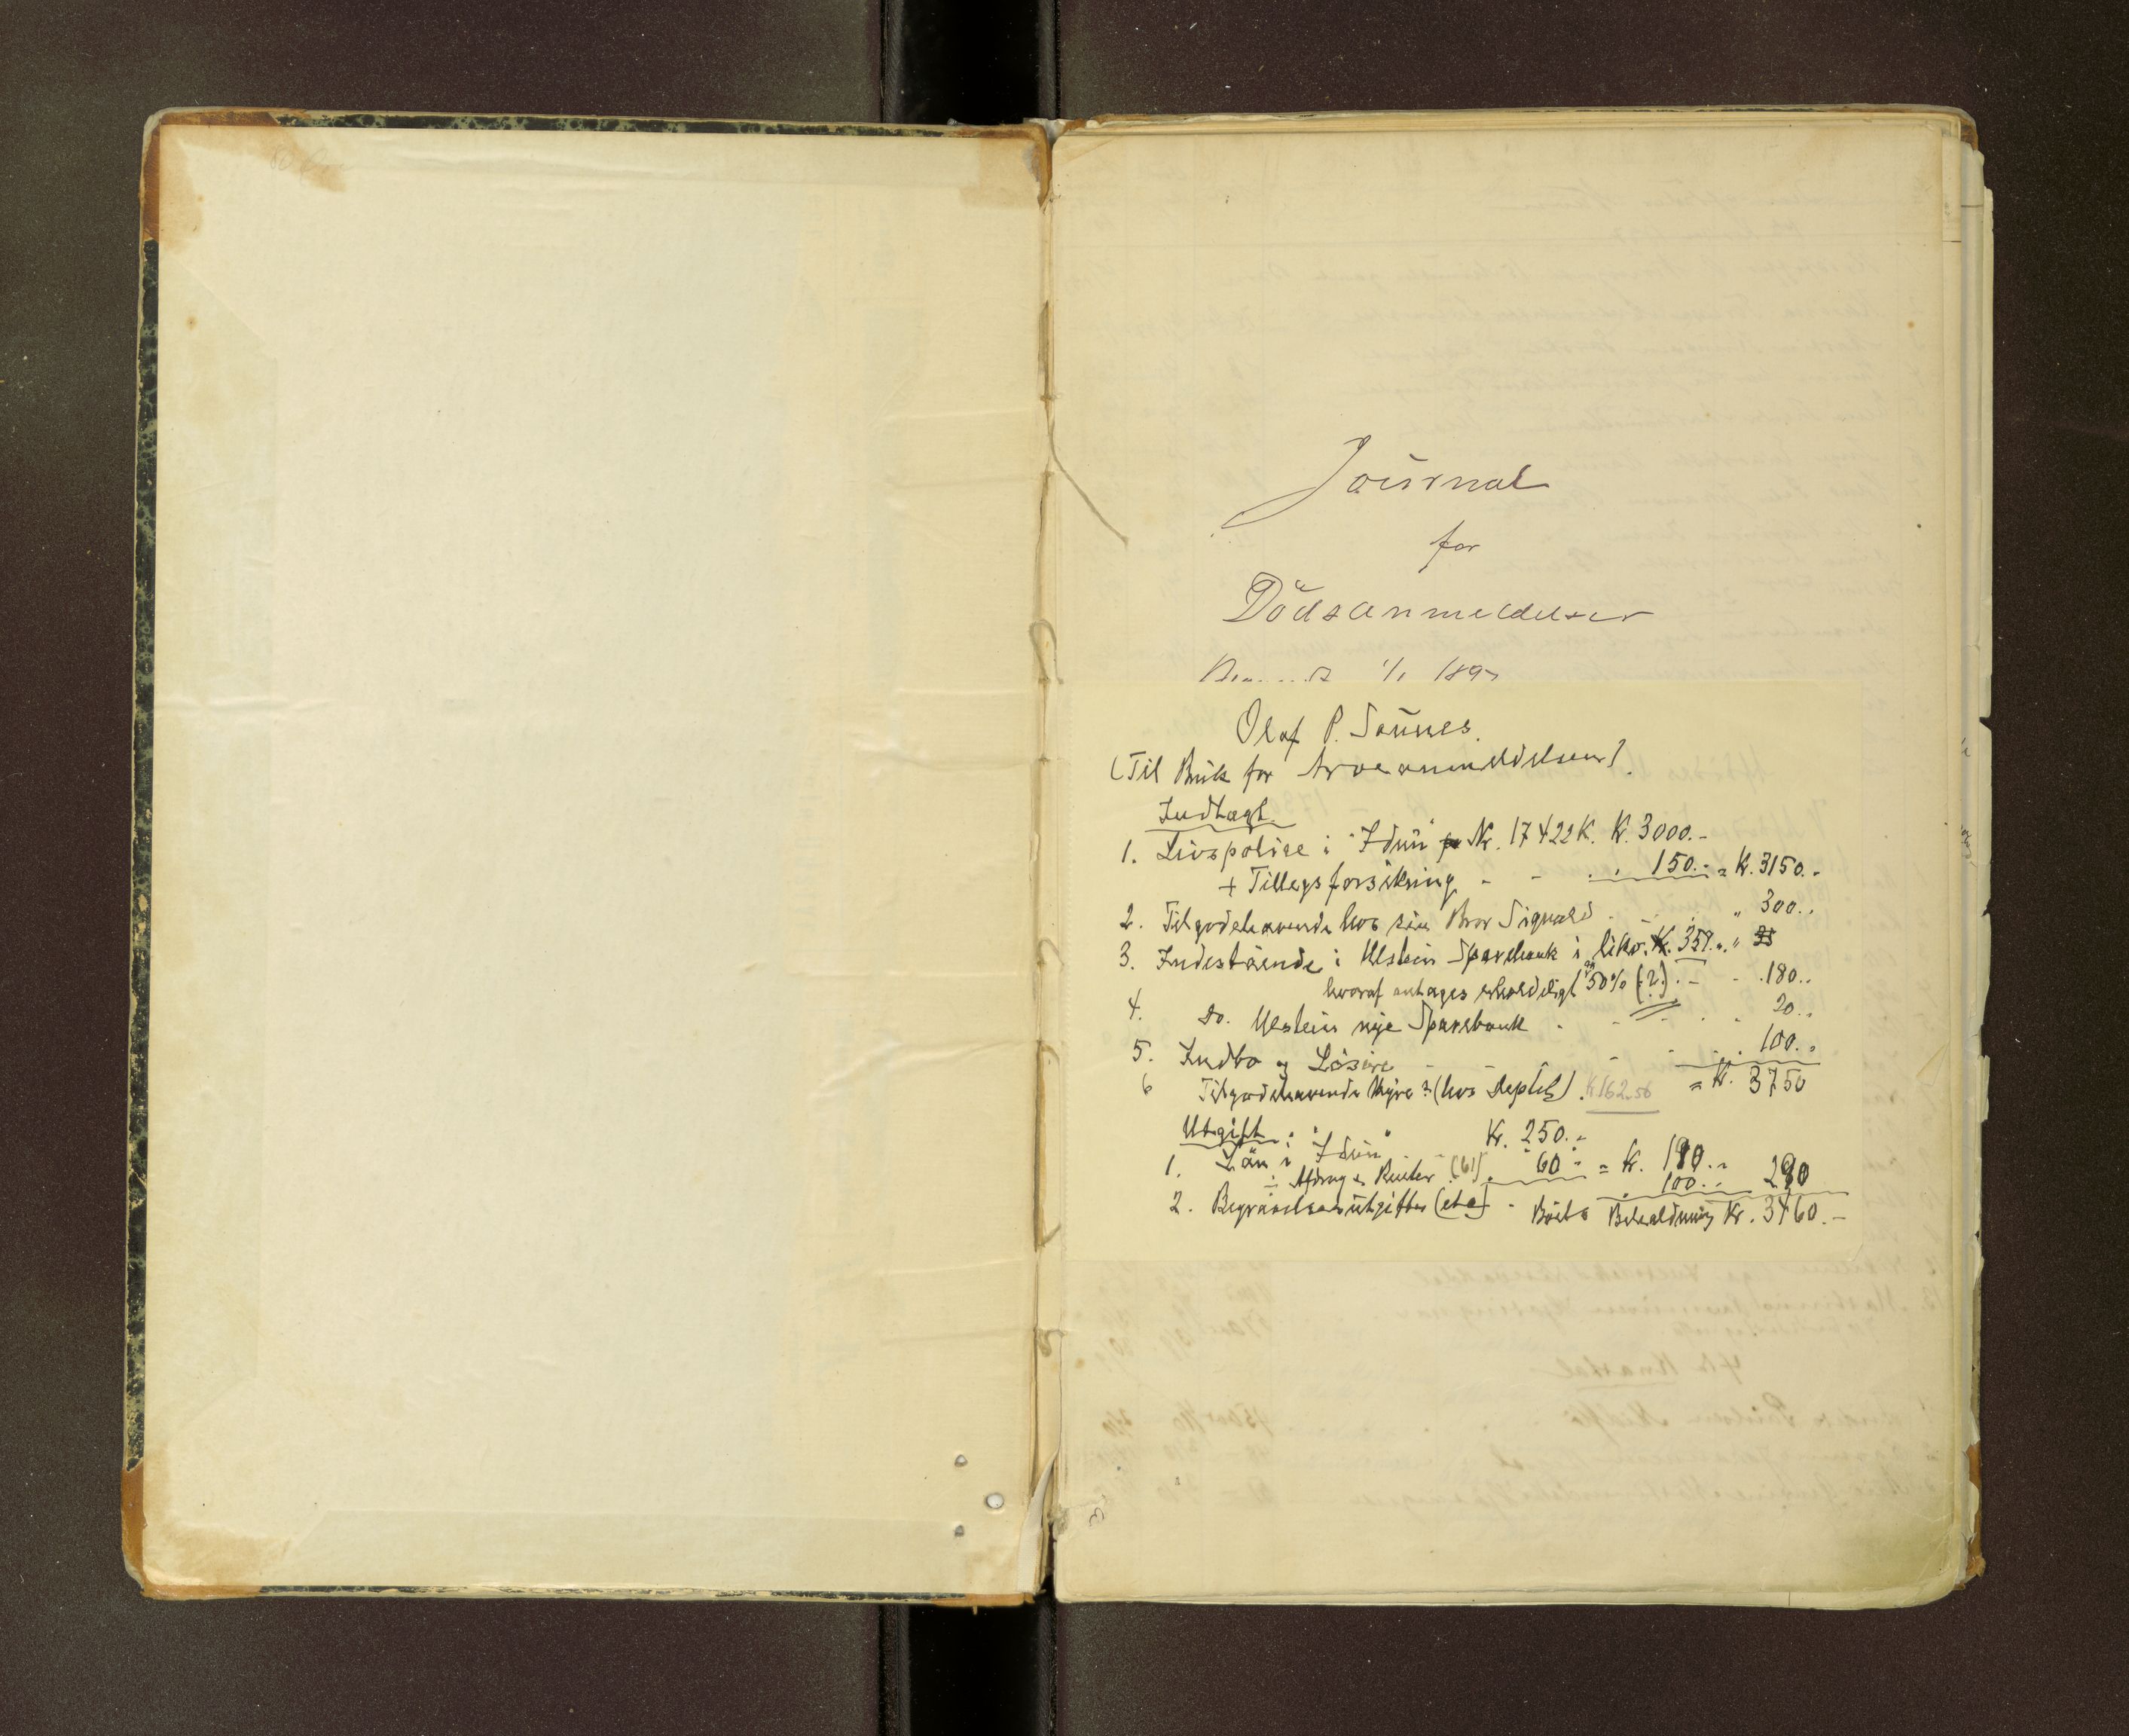 Journal
for
Dödsanmeldelser
1/1 189
Olaf P. Saunes.
(Til Bruk for Arveanmeldelsen).
Indtægt.
1. Livspolise i "Idun" Nr. 17422K. Kr. 3000.-
+ Tillegsforsikring - - . . 150.- = Kr. 3150.-
2. Tilgodehavende hos sin Bror Sigvald - - . " 300..
3. Indestående i Ulstein Sparebank i likv. Kr. 359.. "
hvoraf antages erholdeligt 50% (?) . - - . 180..
4. Do. Ulstein nye Sparebank . - - . . 20..
5. Indbo og Lösöre - - - - . . 100..
6 Tilgodehavende Hyre ? (hos ) . Kr 162.50 = Kr. 3750
Utgift.
1. Lån i "Idun" - Kr. 250.-
÷ Afdrag & Renter (61) . " 60 - = Kr. 190.-
2. Begravelsesutgifter (etc) - . 100.. 290
Boets Beholdning Kr. 3460.-